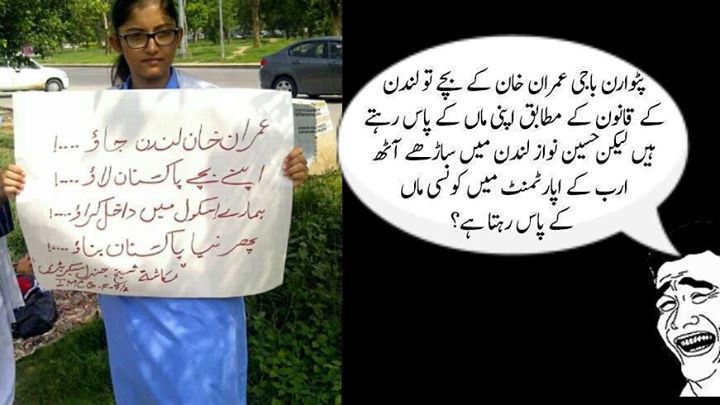 عمران خان لندن جاؤ ....!
اپنے بچے پاکستان لاؤ ....!
ہمارے اسکول میں داخل کراؤ ....!
پھر نیا پاکستان بناؤ ....!
شیخ جنرل سیکریٹری"
I.M.C.G. F-
پٹوارن باجی عمران خان کے بچے تو لندن
کے قانون کے مطابق اپنی ماں کے پاس رہتے
ہیں لیکن حسین نواز لندن میں ساڑھے آٹھ
ارب کے اپارٹمنٹ میں کونسی ماں
کے پاس رہتا ہے؟